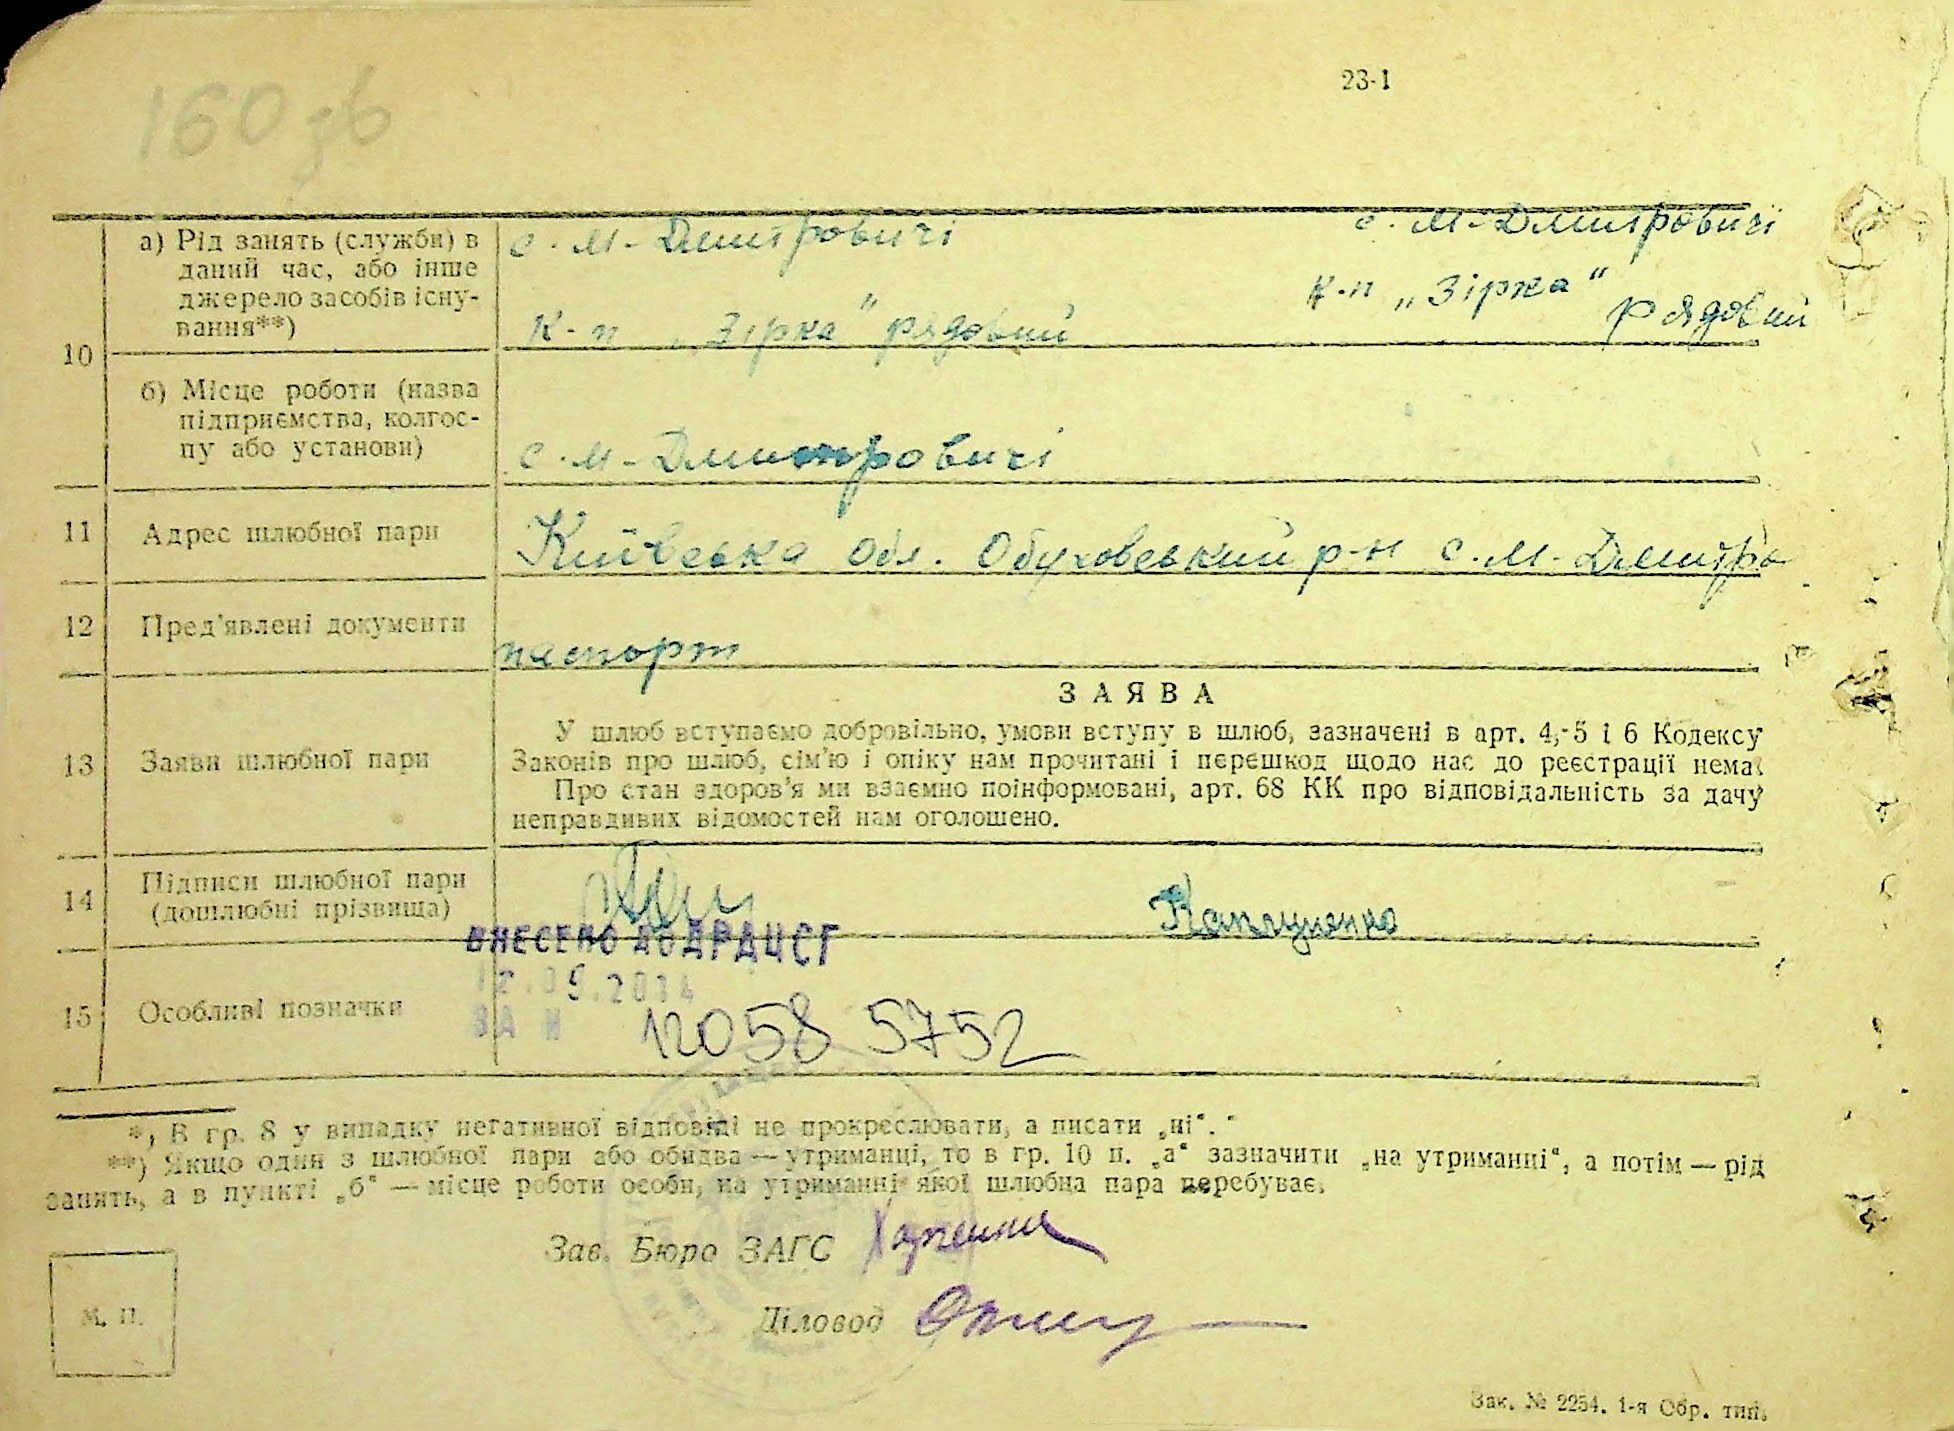 160 зв
23-1
10
а) Рід занять (служби) в
даний час, або інше
джерело засобів існу-
вання**)
с. М-Дмитровичі
к-п „Зірка" рядовий
с. М-Дмитровичі
к-п „Зірка"
рядовий
б) Місце роботи (назва
підприємства, колгос-
пу або установи)
с. М-Дмитровичі
11
Адрес шлюбної пари
Київська обл. Обуховський р-н с. М-Дмитро
12
Пред'явлені документи
паспорт
13
Заяви шлюбної пари
ЗАЯВА
У шлюб вступаємо добровільно, умови вступу в шлюб, зазначені в арт. 4, 5 і 6 Кодексу
Законів про шлюб, сім'ю і опіку нам прочитані і перешкод щодо нас до реєстрації нема.
Про стан здоров'я ми взаємно поінформовані, арт. 68 КК про відповідальність за дачу
неправдивих відомостей нам оголошено.
14
Підписи шлюбної пари
(дошлюбні прізвища)
ВНЕСЕНО ДО ДРАЦСГ
12.05.2014
ЗА N 12058 5752
15
Особливі позначки
*) В гр. 8 у випадку негативної відповіді не прокреслювати, а писати „ні".
**) Якщо один з шлюбної пари або обидва — утриманці, то в гр. 10 п. „а" зазначити „на утриманні", а потім — рід
занять, а в пункті „б" — місце роботи особи, на утриманні якої шлюбна пара перебуває.
Зав. Бюро ЗАГС
Діловод
М. П.
Зак. № 2254. 1-я Обр. тип.